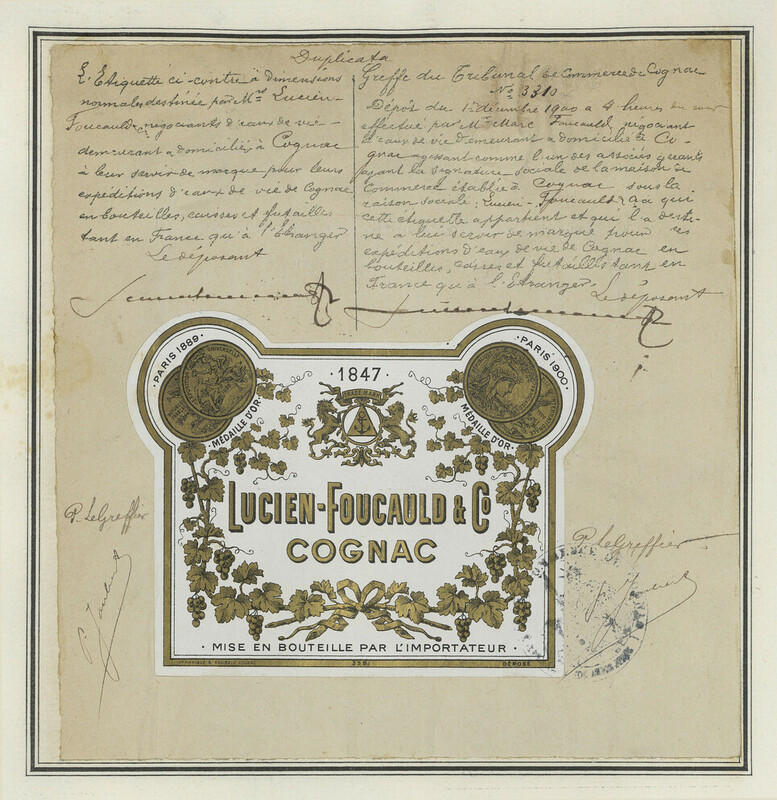 Duplicata
L'Etiquette ci-contre à dimensions
normales destinée par Mrs Lucien-
Foucauld & Co négociants d'eaux de vie
demeurant & domiciliés à Cognac
à leur servir de marque pour leurs
expéditions d'eaux de vie de Cognac
en bouteilles, caisses et futailles
tant en France qu'à l'Etranger
Le déposant
Greffe du Tribunal de Commerce de Cognac
No 3310
Dépôt du 1er décembre 1900 à 4 heures du soir
effectué par Mr Marc Foucauld, négociant
d'eaux de vie demeurant & domicilié à Co-
gnac agissant comme l'un des associés gérants
ayant la signature sociale de la maison de
Commerce établie à Cognac sous la
raison sociale: Lucien-Foucauld & Co à qui
cette étiquette appartient et qui l'a desti-
né à lui servir de marque pour ses
expéditions d'eaux de vie de Cognac en
bouteilles, caisses et futailles tant en
France qu'à l'Etranger.
Le déposant
·PARIS 1889·
MÉDAILLE D'OR
·1847·
TRADE MARK
·PARIS 1900·
MÉDAILLE D'OR
LUCIEN-FOUCAULD & Co
COGNAC
· MISE EN BOUTEILLE PAR L'IMPORTATEUR ·
DÉPOSÉ
P. Le Greffier
P. Le Greffier